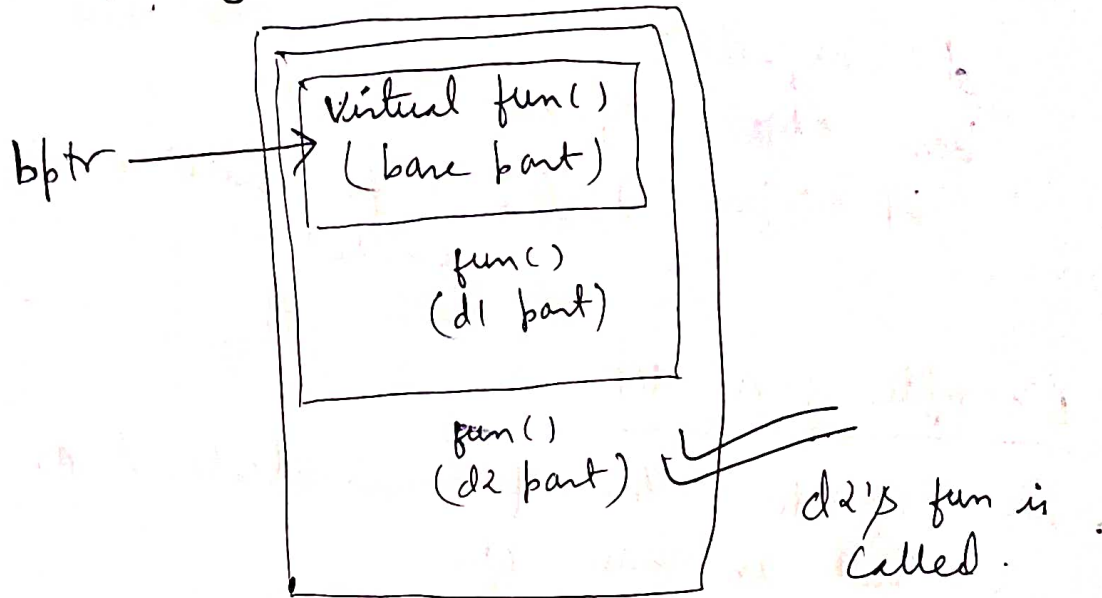 bptr
Virtual fun()
(base part)
fun()
(d1 part)
fun()
(d2 part)
d2's fun is
called.